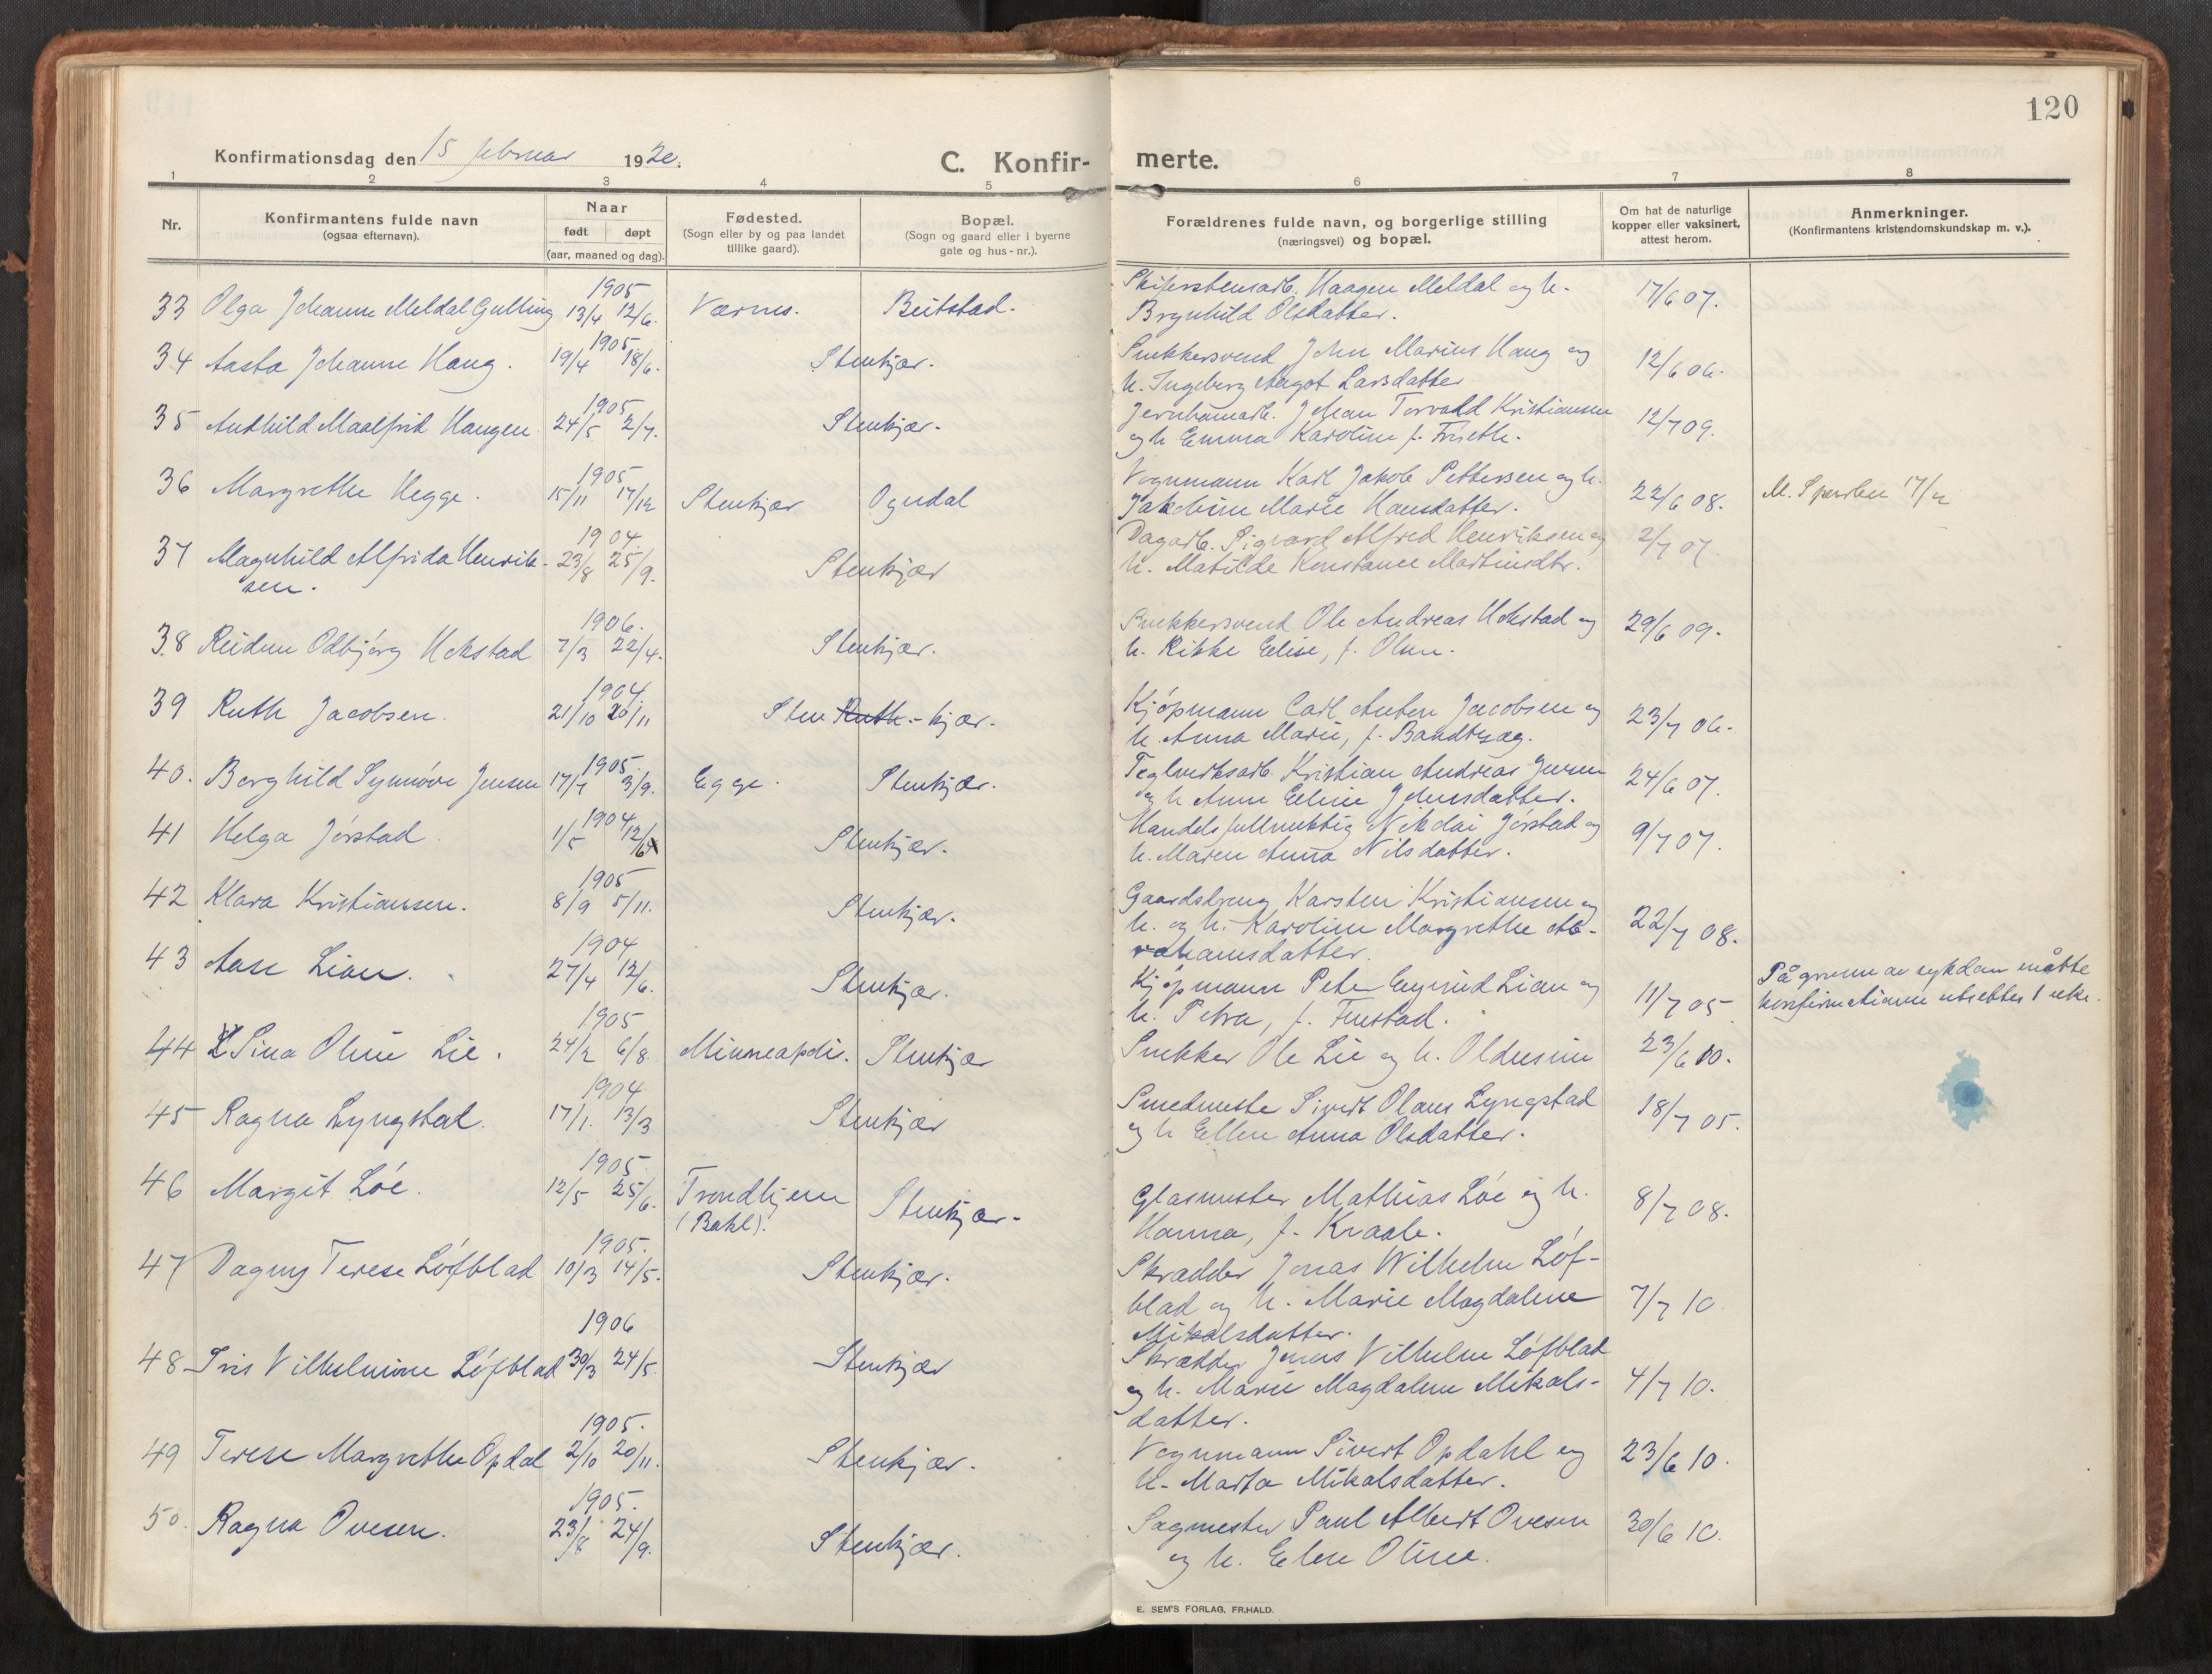 120
Konfirmationsdag den 15 februar 1920.
C. Konfirmerte.
1 2 3 4 5 6 7 8
Nr.
Konfirmantens fulde navn
(ogsaa efternavn).
Naar
født døpt
(aar, maaned og dag).
Fødested.
(Sogn eller by og paa landet
tillike gaard).
Bopæl.
(Sogn og gaard eller i byerne
gate og hus-nr.).
Forældrenes fulde navn, og borgerlige stilling
(næringsvei) og bopæl.
Om hat de naturlige
kopper eller vaksinert,
attest herom.
Anmerkninger.
(Konfirmantens kristendomskundskap m. v.).
1905
33 Olga Johanne Meldal Gulling 13/4 12/6. Værnes. Beitstad. Haagen Meldal og h. 17/6 07.
Brynhild Olsdatter.
1905
34 Aasta Johanne Haug. 19/4 18/6. Stenkjær. Snekkersvend John Marius Haug og 12/6 06.
h. Ingeborg Aagot Larsdatter
1905
35 Audhild Maalfrid Haugen 24/5 2/7. Stenkjær. Johan Torvald Kristiansen 12/7 09.
og h Emma Karoline f. Friseth.
1905
36 Margrethe Hegge. 15/11 17/12 Stenkjær Ogndal Vognmann Karl Jakob Pettersen og h. 22/6 08. M. 17/2
Jakobine Marie Hansdatter.
1904.
37 Magnhild Alfrida Henrik- 23/8 25/9. Stenkjær Dagarb. Sigvard Alfred Henriksen og 2/7 07.
sen. h. Matilde Konstance Martinsdtr.
1906.
38 Reidun Odbjørg Hokstad 7/3 22/4. Stenkjær. Snekkersvend Ole Andreas Hokstad og 29/6 09.
h. Rikke Eelise, f. Olsen.
1904
39 Ruth Jacobsen. 21/10 20/11 Sten Ruth - kjær. Kjøpmann Carl Anton Jacobsen og 23/7 06.
h. Anna Marie, f.
1905.
40. Borghild Synnøve Jensen 17/7 3/9. Egge. Stenkjær. Teglverksarb. Kristian Andreas Jensen 24/6 07.
og h Anne Eeline Johnsdatter.
1904
41 Helga Jørstad. 1/5 12/6 Stenkjær. Handelsfullmektig Nikolai Jørstad og 9/7 07.
h. Maren Anna Nilsdatter.
1905
42 Klara Kristiansen. 8/9 5/11. Stenkjær. Gaardsdreng Karsten Kristiansen og 22/7 08.
h. og h. Karoline Margrethe Ab-
rahamsdatter.
1904
43 Aase Lian. 27/4 12/6. Stenkjær. Kjøpmann Peter Eyvind Lian og 11/7 05 På grunn av sykdom måtte
h. Petra, f. Finstad. konfirmationen utsettes 1 uke.
1905
44 Sina Oline Lie. 24/2 6/8. Minneapolis. Stenkjær Snekker Ole Lie og h. Oldusine 23/6 10.
1904
45 Ragna Lyngstad. 17/1. 13/3 Stenkjær Smedmester Sivert Olaus Lyngstad 18/7 05.
og h Ellen Anna Olsdatter.
1905
46 Margit Løe. 12/5 25/6. Trondhjem Stenkjær. Glasmester Mathias Løe og h. 8/7 08.
(Bakl). Hanna, f. Kraabe.
1905.
47 Dagny Terese Løfblad 10/3 14/5. Stenkjær. Skrædder Jonas Wilhelm Løf-
blad og h. Marie Magdalene 7/7 10.
Mikalsdatter.
1906
48 Iris Vilhelmine Løfblad 30/3 24/5. Stenkjær Skrædder Jonas Vilhelm Løfblad
og h. Marie Magdalene Mikals- 4/7 10.
datter.
1905.
49 Terese Margrethe Opdal 2/10 20/11. Stenkjær. Vognmann Sivert Opdahl og 23/6 10.
h. Marta Mikalsdatter.
1905.
50. Ragna Ovesen. 23/8 24/9. Stenkjær. Sagmester Paul Albert Ovesen 30/6 10.
og h. Eelen Oline.
E. SEM'S FORLAG, FR.HALD.